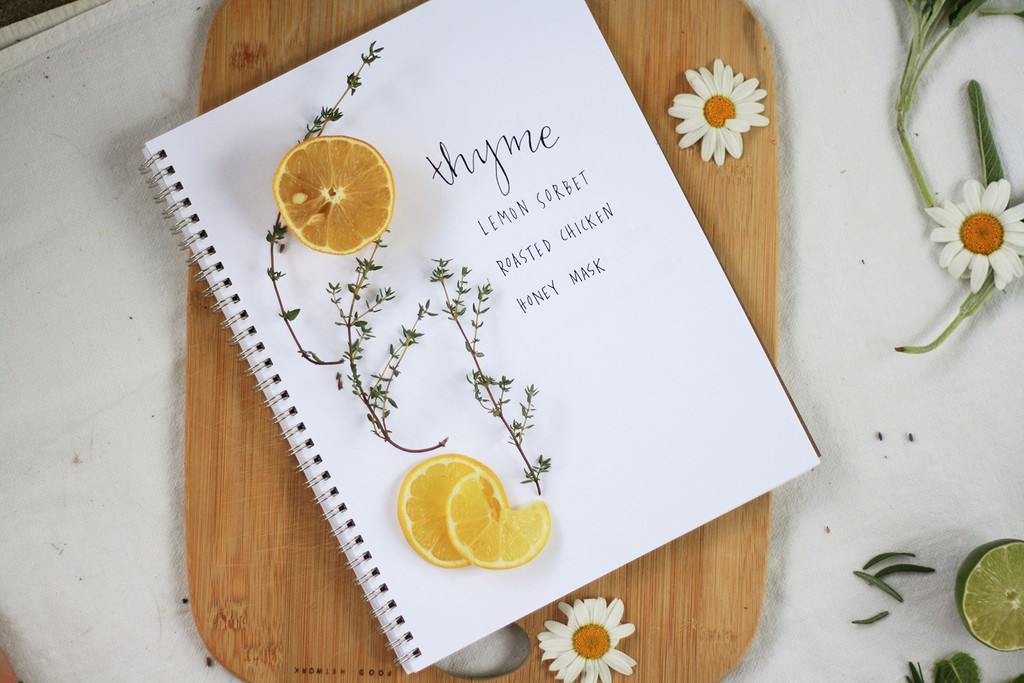 thyme
LEMON SORBET
ROASTED CHICKEN
HONEY MASK
FOOD NETWORK